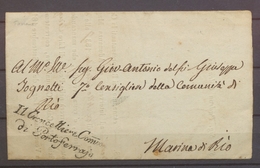 Al Mto Sr. Sig. Giov. Antonio del fu Giuseppe
Tognotti 7° Consigliere della Comunità di
Rio
Il Cancelliere Com.
di Portoferrajo
Marina di Rio